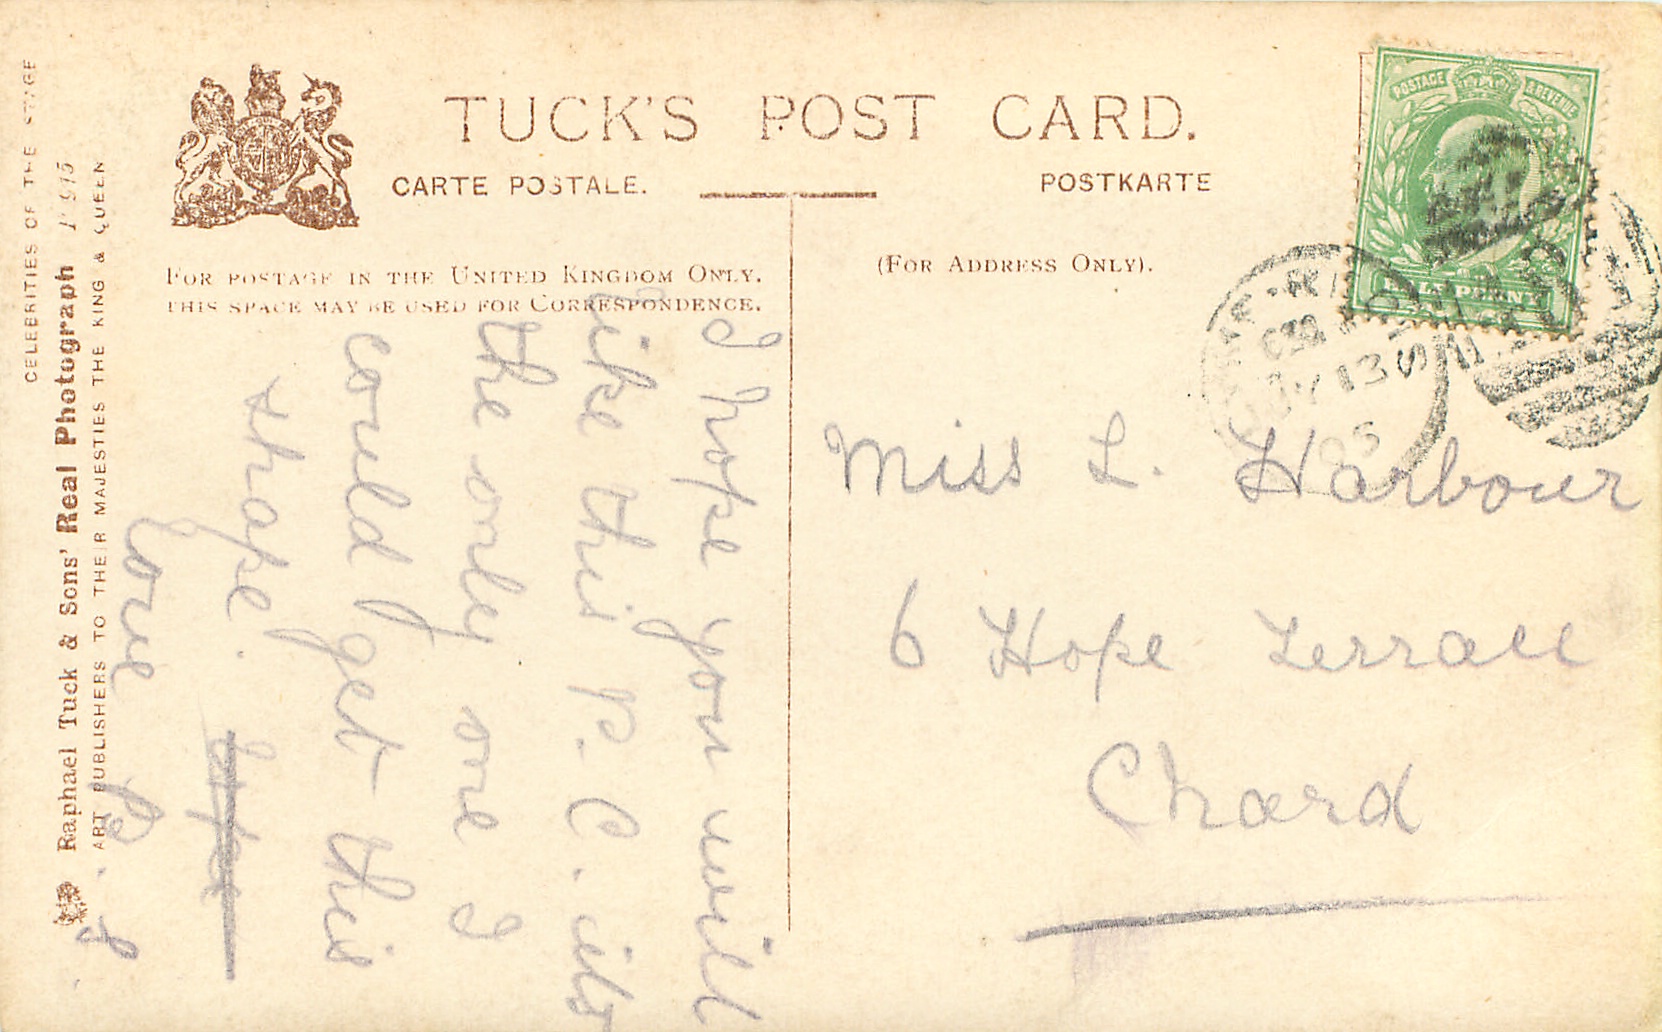 CELEBRITIES OF THE STAGE
Raphael Tuck & Sons' Real Photograph
ART PUBLISHERS TO THEIR MAJESTIES THE KING & QUEEN
TUCK'S POST CARD.
CARTE POSTALE.
POSTKARTE
FOR POSTAGE IN THE UNITED KINGDOM ONLY.
THIS SPACE MAY BE USED FOR CORRESPONDENCE.
(FOR ADDRESS ONLY).
POSTAGE & REVENUE
HALFPENNY
JY 13
05
I hope you will
like this P. C. its
the only one I
could get this
shape.
Love
Miss L. Harbour
6 Hope Terrace
Chard